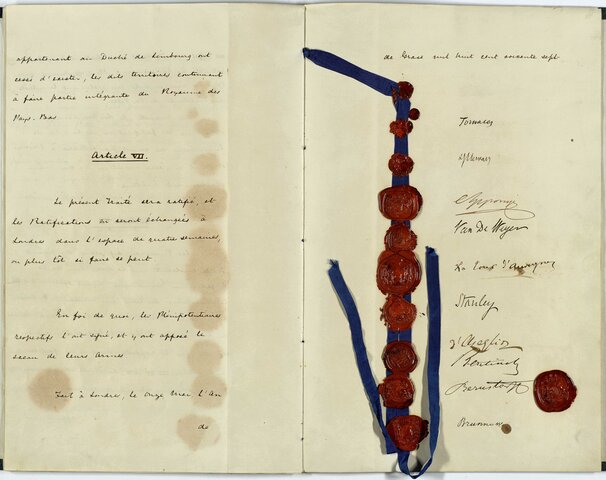 appartenant au Duché de Limbourg ont
cessé d'exister, les dits territoires continuant
à faire partie intégrante du Royaume des
Pays-Bas
Article VII.
Le présent Traité sera ratifié, et
les Ratifications en seront échangées à
Londres dans l'espace de quatre semaines,
ou plus tôt si faire se peut
En foi de quoi, les Plénipotentiaires
respectifs l'ont signé, et y ont apposé le
sceau de leurs Armes
Fait à Londres, le onze Mai l'An
de
de Grace mil huit cent soixante sept
Tornaco
Apponyi
Van De Weyer
La Tour d'Auvergne
Stanley
d'Azeglio
Bentinck
Bernstorff
Brunnow